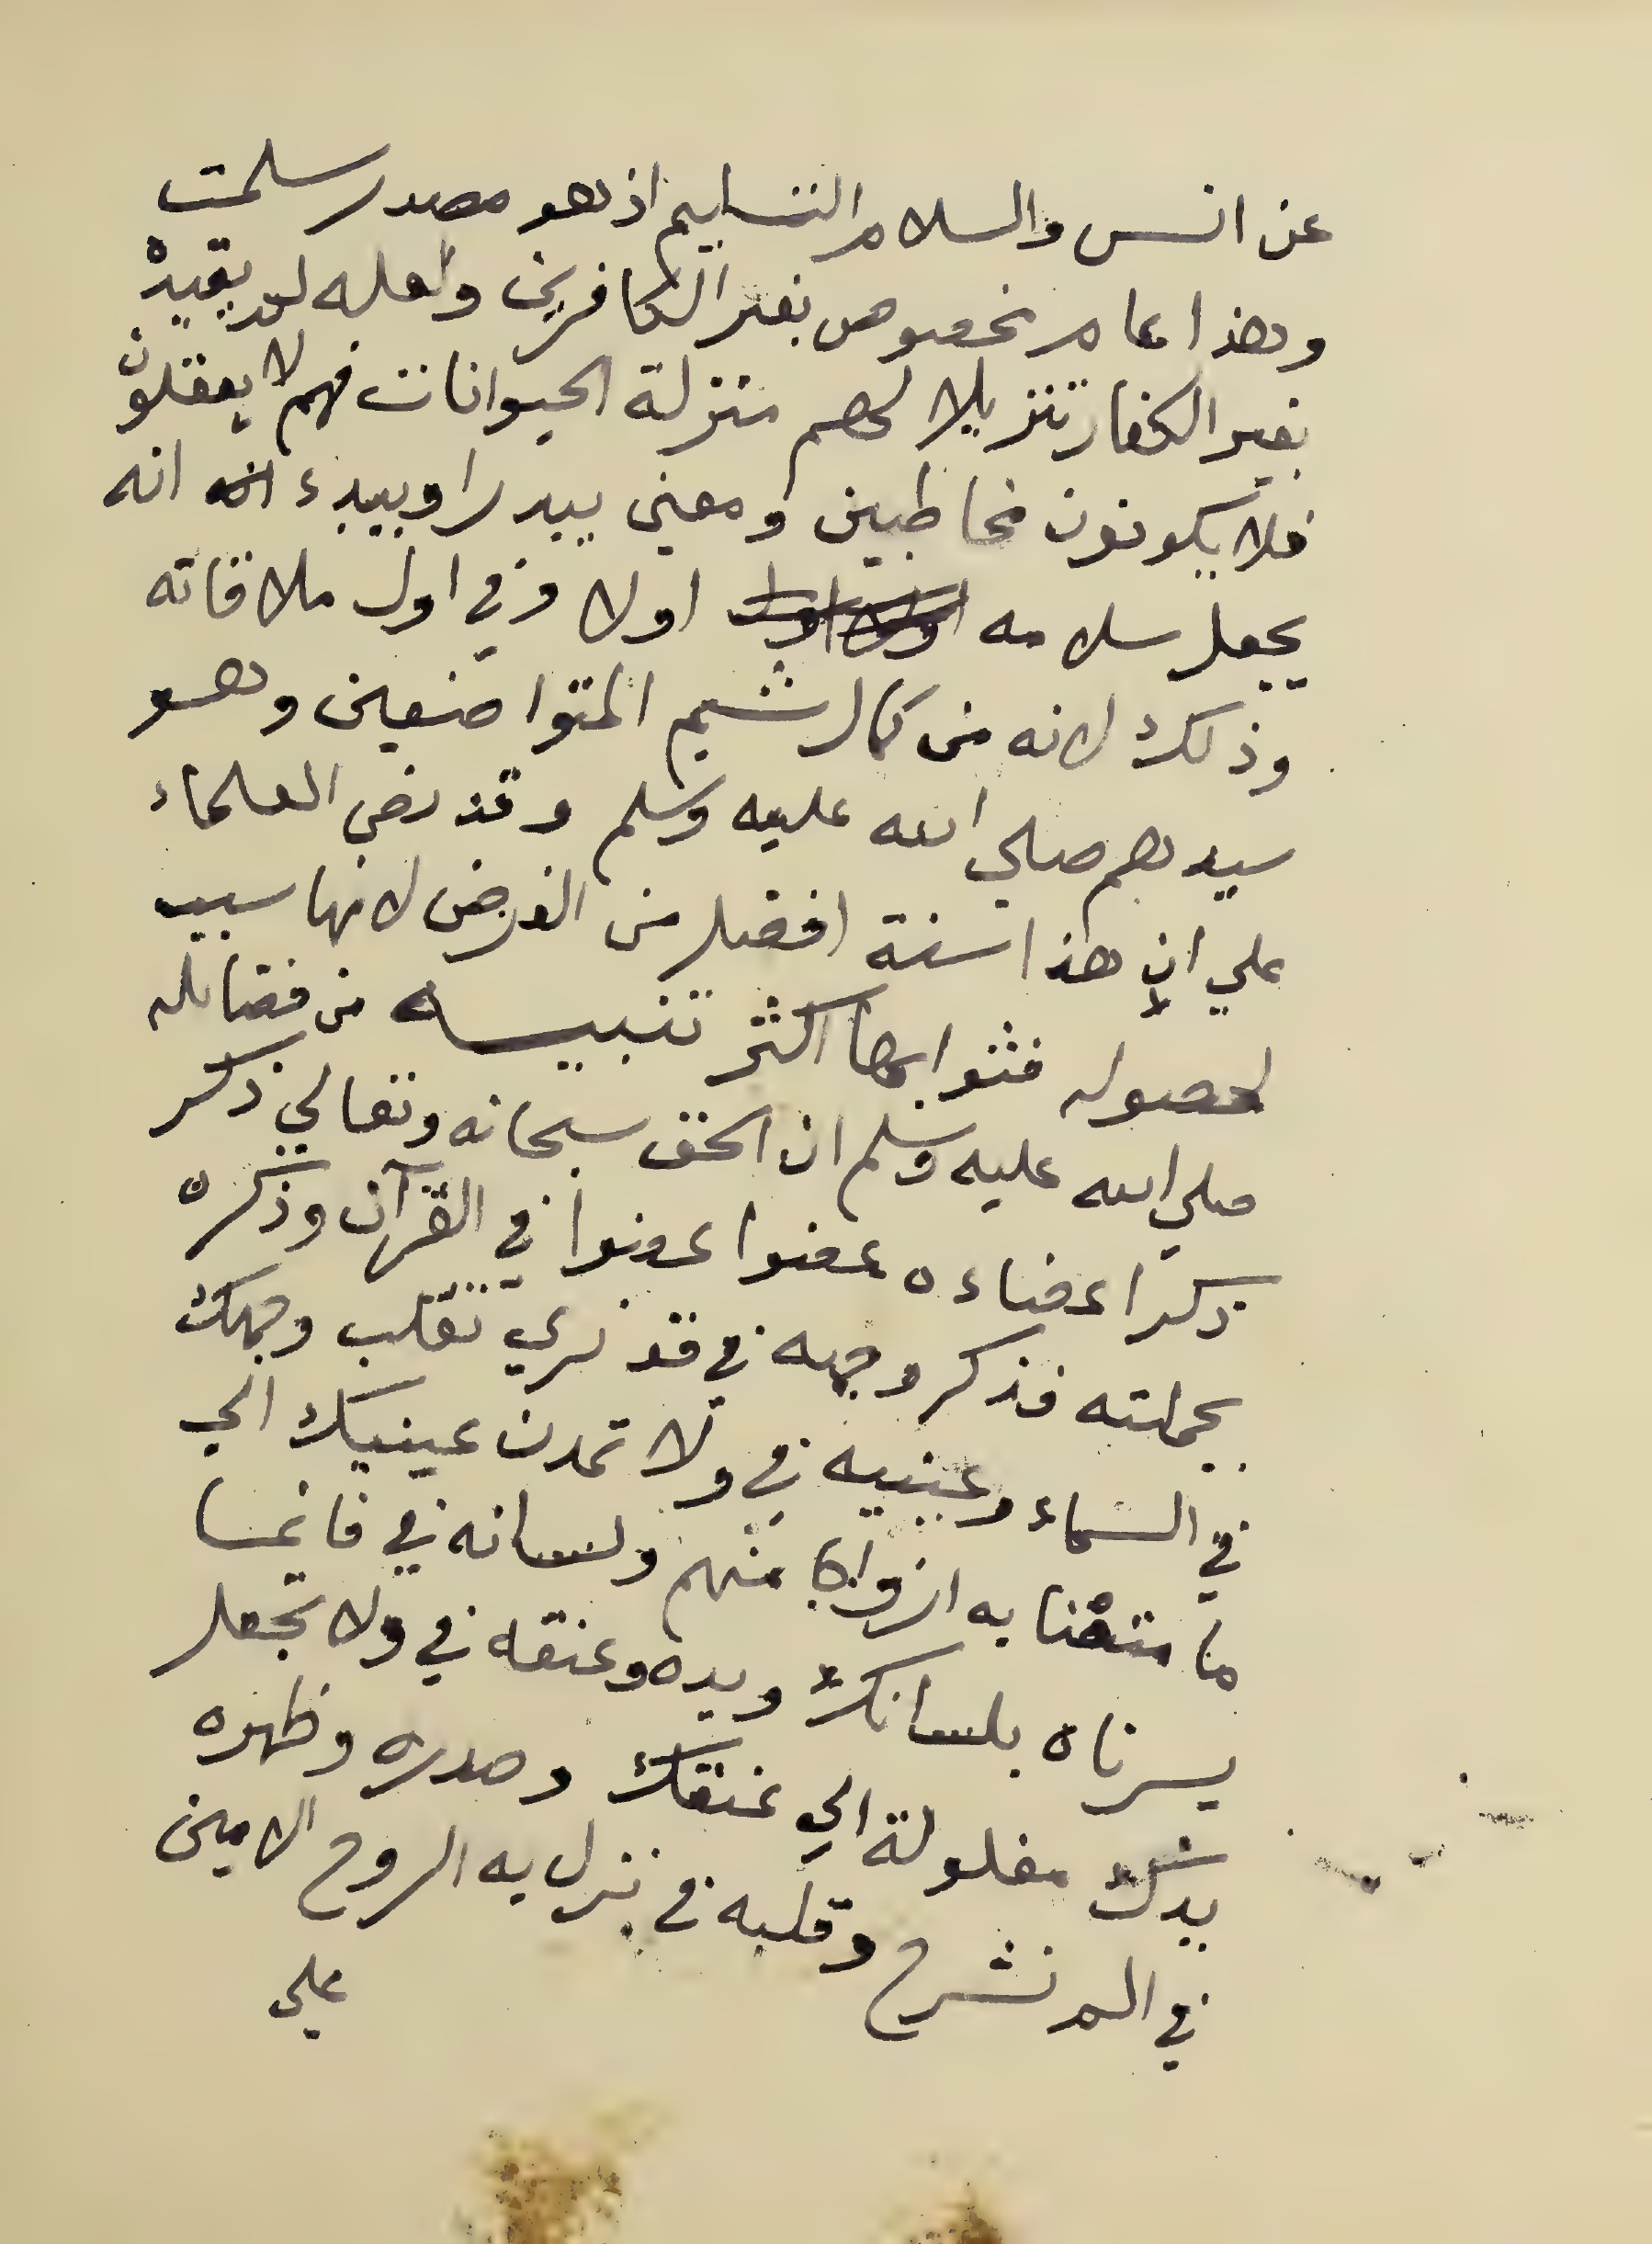 عن انس والسلام التسليم اذ هو مصدر سلمت
وهذا عام مخصوص بغير الكافرين ولعله لم يقيده
بغير الكفار تنزيلا لهم منزلة الحيوانات فهم لا يعقلون
فلا يكونون مخاطبين ومعني يبدر او يبدء انه
يجعل سلامه اولا وفي اول ملاقاته
وذلك لانه من كمال شيم المتواضعين وهو
سيدهم صلي الله عليه وسلم وقد نص العلماء
علي ان هذا سنة افضل من الفرض لانها سبب
لحصوله فثوابها اكثر تنبيه من فضائله
صلي الله عليه وسلم ان الحق سبحانه وتعالي ذكر
ذكر اعضاءه عضوا عضوا في القرآن وذكره
بجملته فذكر وجهه في قد نري تقلب وجهك
في السماء وعينيه في ولا تمدن عينيك الي
ما متعنا به ازواجا منهم ولسانه في فانما
يسرناه بلسانك ويده وعنقه في ولا تجعل
يدك مغلولة الي عنقك وصدره وظهره
في الم نشرح وقلبه في نزل به الروح الامين
علي